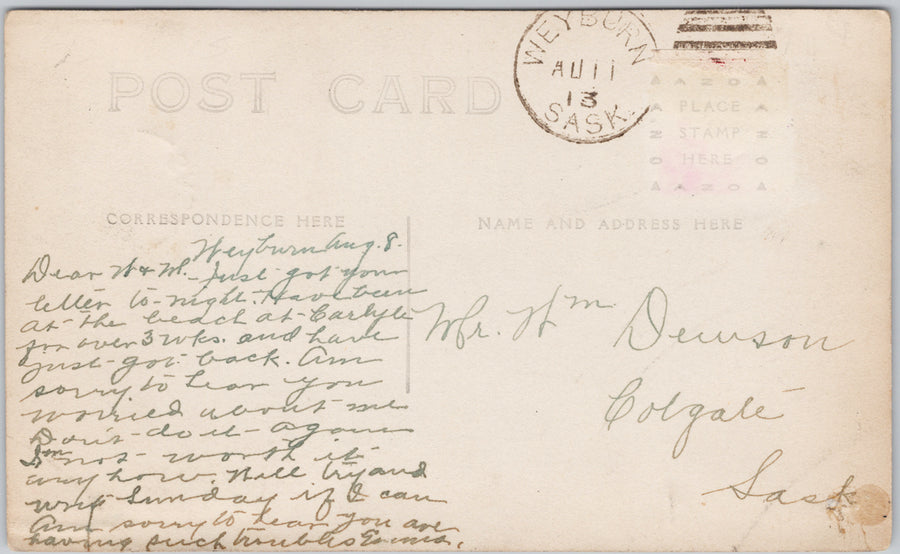 POST CARD
WEYBURN
AU 11
13
SASK.
AZO
PLACE
STAMP
HERE
AZO
CORRESPONDENCE HERE
NAME AND ADDRESS HERE
Weyburn Aug. 8.
Dear W & M. – Just got your
letter to-night. Have been
at the beach at Carlyle
for over 3 wks. and have
just got back. Am
sorry to hear you
worried about me
Don't do it again
I'm not worth it
anyhow. Will try and
write Sunday if I can
Am sorry to hear you are
having such troubles Emma.
Mr. Wm Dewson
Colgate
Sask